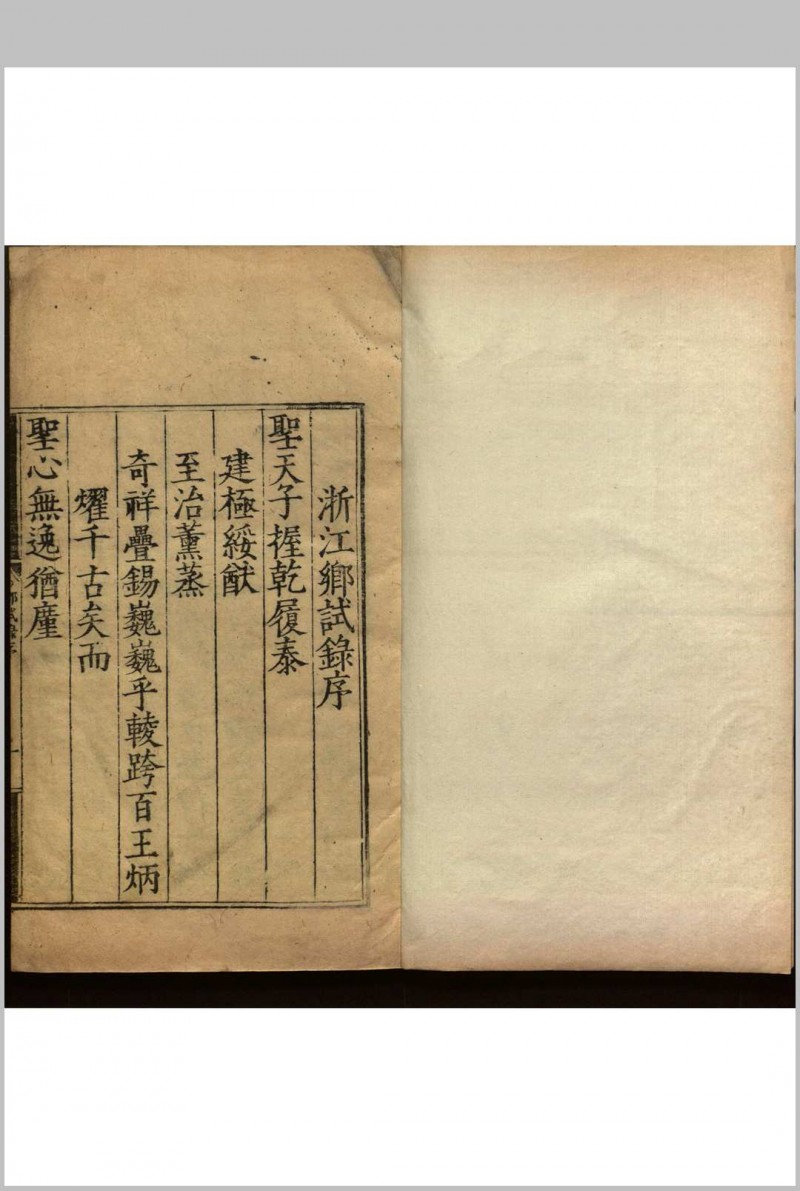 浙江鄉試錄序
聖天子握乾履泰
建極綏猷
至治薰蒸
奇祥疊錫巍巍乎輘跨百王炳
燿千古矣而
聖心無逸猶廑